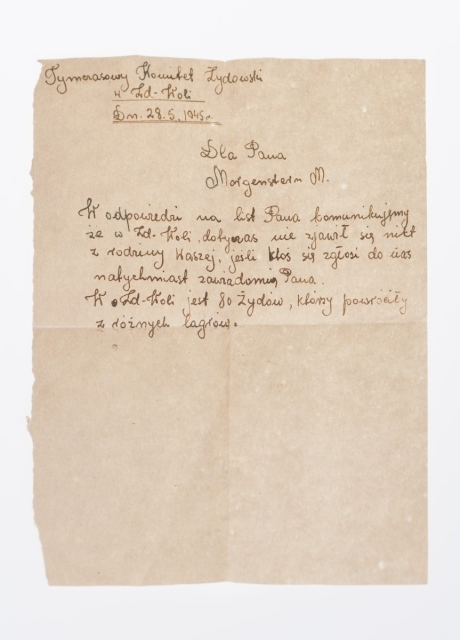 Tymczasowy Komitet Żydowski
w Zd-Woli
Dn. 28.5.1945r.
Dla Pana
Morgenstern M.
W odpowiedzi na list Pana komunikujemy
że w Zd-Woli dotyczas nie zjawił się nikt
z rodziny Waszej, jeśli ktoś się zgłosi do nas
natychmiast zawiadomię Pana.
W Zd-Woli jest 80 Żydów, którzy powróciły
z różnych łagrów.